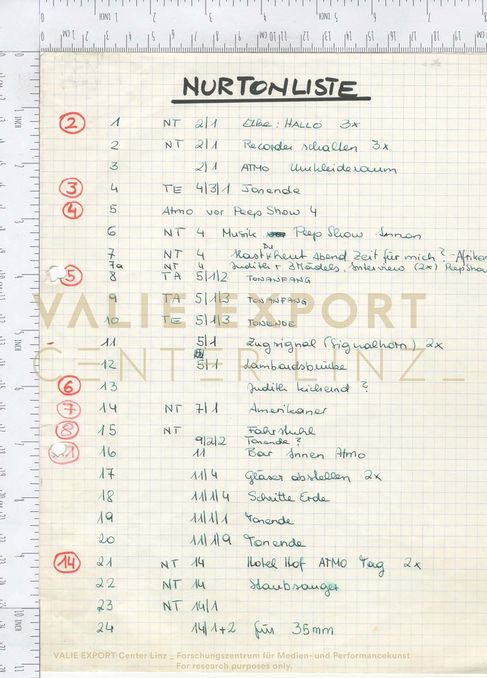 NURTONLISTE
② 1 NT 2/1 Elke: HALLO 3x
2 NT 2/1 Recorder schalten 3x
3 2/1 ATMO Umkleideraum
③ 4 TE 4/3/1 Tonende
④ 5 Atmo vor Peep Show 4
6 NT 4 Musik Peep Show Innen
7 NT 4 Hast Du heut Abend Zeit für mich? - Afrikan
7a NT 4 Judith + 3 Mädels, Interview (2x) Peepshow
⑤ 8 TA 5/1/2 TONANFANG
9 TA 5/1/3 TONANFANG
10 TE 5/1/3 TONENDE
- 11 5/1 Zugsignal (Signalhorn) 2x
12 5/1 Lombardsbrücke
⑥ 13 Judith kichernd?
⑦ 14 NT 7/1 Amerikaner
⑧ 15 NT Fahrstuhl
9/2/2 Tonende?
11 16 11 Bar Innen Atmo
17 11/4 Gläser abstellen 2x
18 11/1/4 Schritte Erde
19 11/1/1 Tonende
20 11/1/9 Tonende
⑭ 21 NT 14 Hotel Hof ATMO Tag 2x
22 NT 14 Staubsauger
23 NT 14/1
24 14/1+2 für 35mm
VALIE EXPORT
CENTER LINZ _
VALIE EXPORT Center Linz _ Forschungszentrum für Medien- und Performancekunst
For research purposes only.